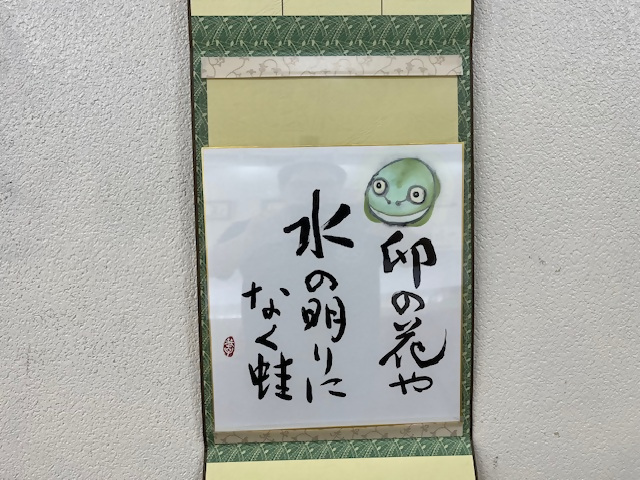 卯の花や
水の明りに
なく蛙